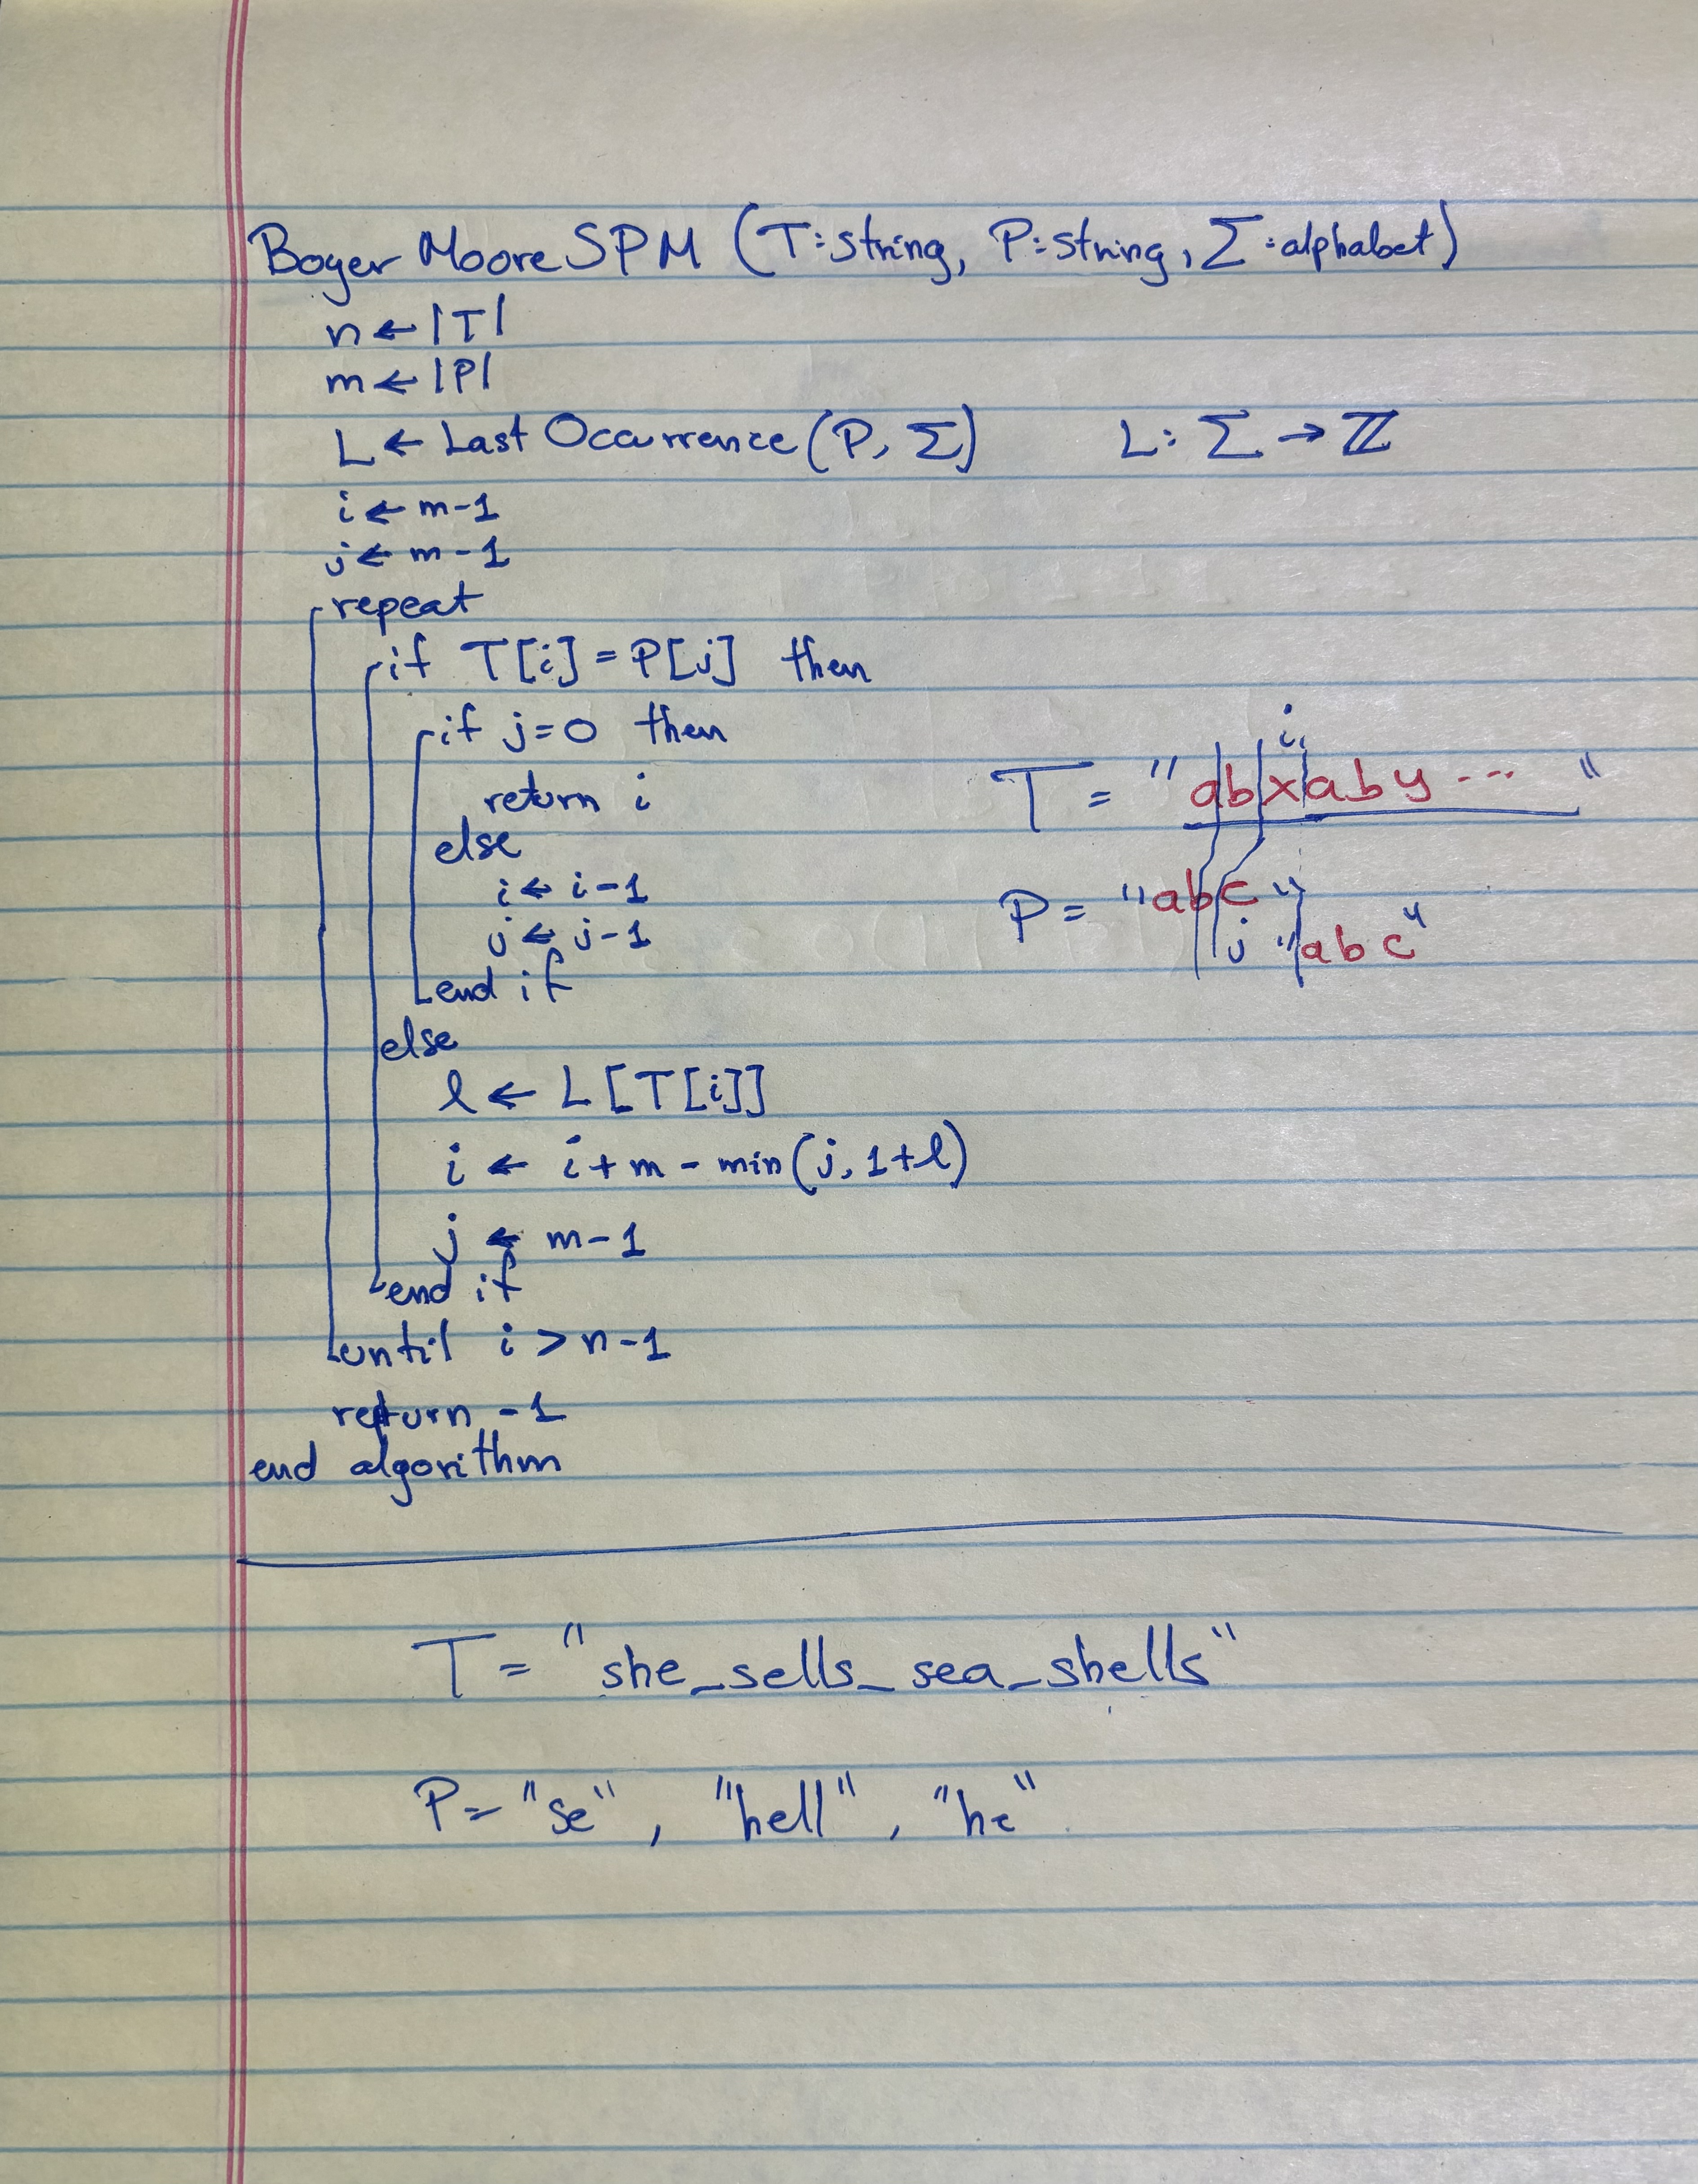 Boyer Moore SPM (T:string, P:string, Σ:alphabet)
n ← |T|
m ← |P|
L ← Last Occurrence (P, Σ) L: Σ → ℤ
i ← m-1
j ← m-1
repeat
if T[i] = P[j] then
if j=0 then
return i
else
i ← i-1
j ← j-1
end if
else
l ← L[T[i]]
i ← i+m - min(j, 1+l)
j ← m-1
end if
until i > n-1
return -1
end algorithm
i
T = "abxaby ... "
P = "abc"
j "abc"
T = "she_sells_sea_shells"
P = "se", "hell", "he"